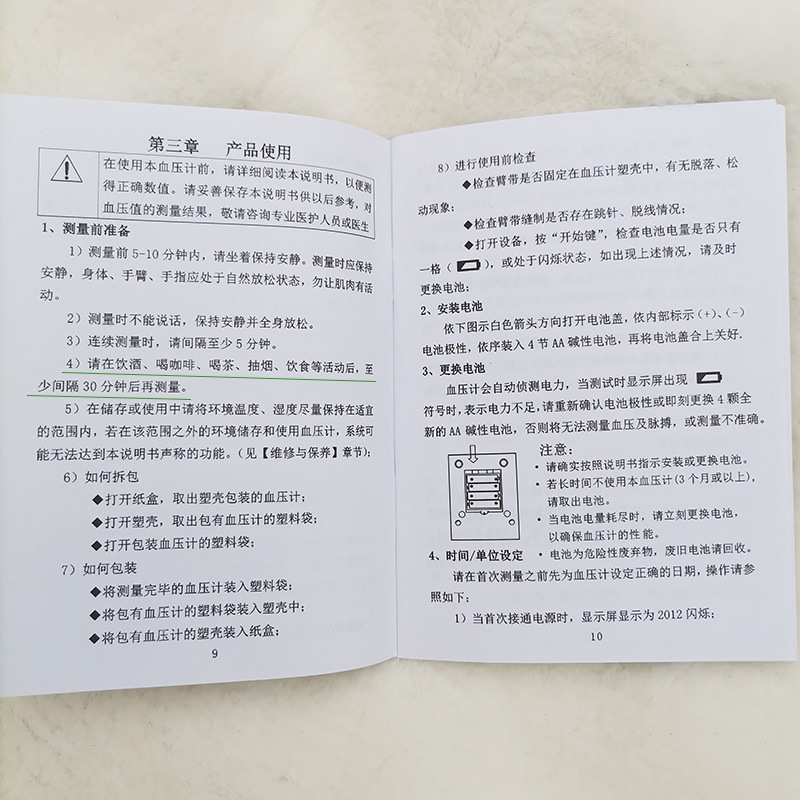 第三章 产品使用
在使用本血压计前，请详细阅读本说明书，以便测
得正确数值。请妥善保存本说明书供以后参考，对
血压值的测量结果，敬请咨询专业医护人员或医生
1、测量前准备
1）测量前5-10分钟内，请坐着保持安静。测量时应保持
安静，身体、手臂、手指应处于自然放松状态，勿让肌肉有活
动。
2）测量时不能说话，保持安静并全身放松。
3）连续测量时，请间隔至少5分钟。
4）请在饮酒、喝咖啡、喝茶、抽烟、饮食等活动后，至
少间隔30分钟后再测量。
5）在储存或使用中请将环境温度、湿度尽量保持在适宜
的范围内，若在该范围之外的环境储存和使用血压计，系统可
能无法达到本说明书声称的功能。（见【维修与保养】章节）；
6）如何拆包
◆打开纸盒，取出塑壳包装的血压计；
◆打开塑壳，取出包有血压计的塑料袋；
◆打开包装血压计的塑料袋；
7）如何包装
◆将测量完毕的血压计装入塑料袋；
◆将包有血压计的塑料袋装入塑壳中；
◆将包有血压计的塑壳装入纸盒；
9
8）进行使用前检查
◆检查臂带是否固定在血压计塑壳中，有无脱落、松
动现象；
◆检查臂带缝制是否存在跳针、脱线情况；
◆打开设备，按“开始键”，检查电池电量是否只有
一格（ ），或处于闪烁状态，如出现上述情况，请及时
更换电池；
2、安装电池
依下图示白色箭头方向打开电池盖，依内部标示(+)、(-)
电池极性，依序装入4节AA碱性电池，再将电池盖合上关好.
3、更换电池
血压计会自动侦测电力，当测试时显示屏出现
符号时，表示电力不足，请重新确认电池极性或即刻更换4颗全
新的AA碱性电池，否则将无法测量血压及脉搏，或测量不准确。
注意：
· 请确实按照说明书指示安装或更换电池。
· 若长时间不使用本血压计(3个月或以上)，
请取出电池。
· 当电池电量耗尽时，请立刻更换电池，
以确保血压计的性能。
· 电池为危险性废弃物，废旧电池请回收。
4、时间/单位设定
请在首次测量之前先为血压计设定正确的日期，操作请参
照如下；
1）当首次接通电源时，显示屏显示为2012闪烁；
10